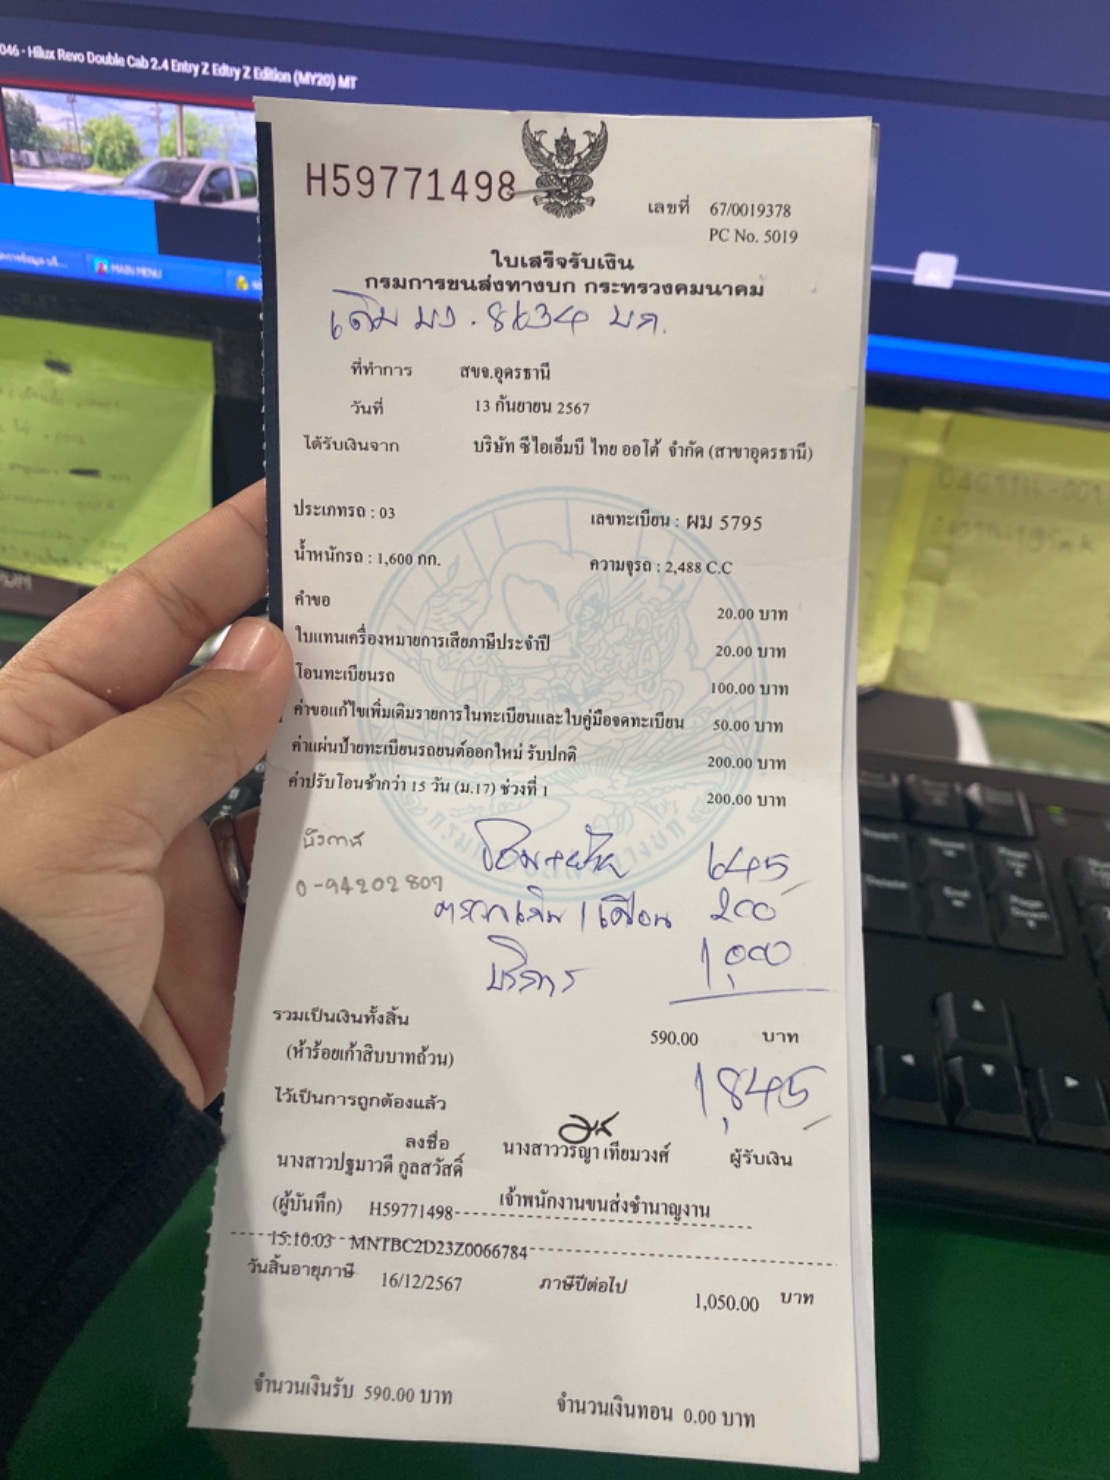 046 - Hilux Revo Double Cab 2.4 Entry Z Edtry Z Edition (MY20) MT
MAIN MENU
H59771498
เลขที่ 67/0019378
PC No. 5019
ใบเสร็จรับเงิน
กรมการขนส่งทางบก กระทรวงคมนาคม
เดิม บง. 8634 บก.
ที่ทำการ สขจ.อุดรธานี
วันที่ 13 กันยายน 2567
ได้รับเงินจาก บริษัท ซีไอเอ็มบี ไทย ออโต้ จำกัด (สาขาอุดรธานี)
ประเภทรถ : 03 เลขทะเบียน : ผม 5795
น้ำหนักรถ : 1,600 กก. ความจุรถ : 2,488 C.C
คำขอ 20.00 บาท
ใบแทนเครื่องหมายการเสียภาษีประจำปี 20.00 บาท
โอนทะเบียนรถ 100.00 บาท
ค่าขอแก้ไขเพิ่มเติมรายการในทะเบียนและใบคู่มือจดทะเบียน 50.00 บาท
ค่าแผ่นป้ายทะเบียนรถยนต์ออกใหม่ รับปกติ 200.00 บาท
ค่าปรับโอนช้ากว่า 15 วัน (ม.17) ช่วงที่ 1 200.00 บาท
645
0-94202807
1 เดือน 200
บริการ 1,000
รวมเป็นเงินทั้งสิ้น 590.00 บาท
(ห้าร้อยเก้าสิบบาทถ้วน)
1,845
ไว้เป็นการถูกต้องแล้ว
ลงชื่อ นางสาววรัญา เทียมวงศ์ ผู้รับเงิน
นางสาวปฐมาวดี กูลสวัสดิ์
(ผู้บันทึก) H59771498 เจ้าพนักงานขนส่งชำนาญงาน
15:10:03 MNTBC2D23Z0066784
วันสิ้นอายุภาษี 16/12/2567 ภาษีปีต่อไป 1,050.00 บาท
จำนวนเงินรับ 590.00 บาท จำนวนเงินทอน 0.00 บาท